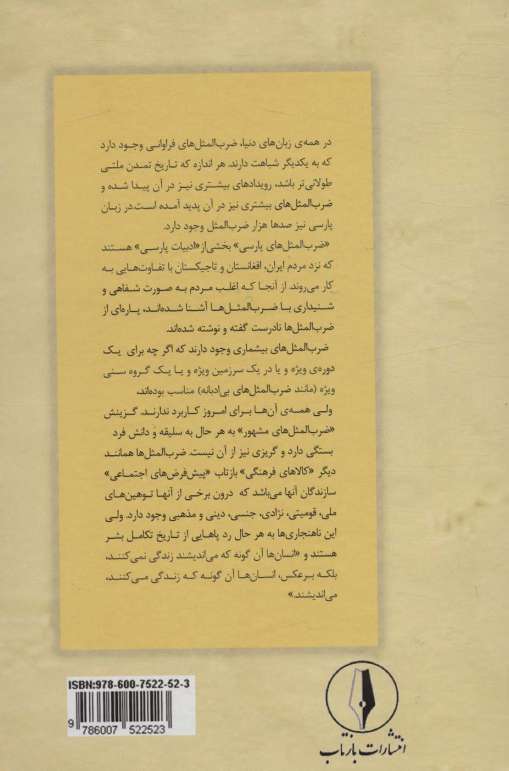 در همه‌ی زبان‌های دنیا، ضرب‌المثل‌های فراوانی وجود دارد
که به یکدیگر شباهت دارند. هر اندازه که تاریخ تمدن ملتی
طولانی‌تر باشد، رویدادهای بیشتری نیز در آن پیدا شده و
ضرب‌المثل‌های بیشتری نیز در آن پدید آمده است. در زبان
پارسی نیز صدها هزار ضرب‌المثل وجود دارد.
«ضرب‌المثل‌های پارسی» بخشی از «ادبیات پارسی» هستند
که نزد مردم ایران، افغانستان و تاجیکستان با تفاوت‌هایی به
کار می‌روند. از آنجا که اغلب مردم به صورت شفاهی و
شنیداری با ضرب‌المثل‌ها آشنا شده‌اند، پاره‌ای از
ضرب‌المثل‌ها نادرست گفته و نوشته شده‌اند.
ضرب‌المثل‌های بیشماری وجود دارند که اگر چه برای یک
دوره‌ی ویژه و یا در یک سرزمین ویژه و یا یک گروه سنی
ویژه (مانند ضرب‌المثل‌های بی‌ادبانه) مناسب بوده‌اند،
ولی همه‌ی آن‌ها برای امروز کاربرد ندارند. گزینش
«ضرب‌المثل‌های مشهور» به هر حال به سلیقه و دانش فرد
بستگی دارد و گریزی نیز از آن نیست. ضرب‌المثل‌ها همانند
دیگر «کالاهای فرهنگی» بازتاب «پیش‌فرض‌های اجتماعی»
سازندگان آنها می‌باشد که درون برخی از آنها توهین‌های
ملی، قومیتی، نژادی، جنسی، دینی و مذهبی وجود دارد. ولی
این ناهنجاری‌ها به هر حال رد پاهایی از تاریخ تکامل بشر
هستند و «انسان‌ها آن گونه که می‌اندیشند زندگی نمی‌کنند،
بلکه برعکس، انسان‌ها آن گونه که زندگی می‌کنند،
می‌اندیشند.»
ISBN:978-600-7522-52-3
9 786007 522523
انتشارات بازتاب